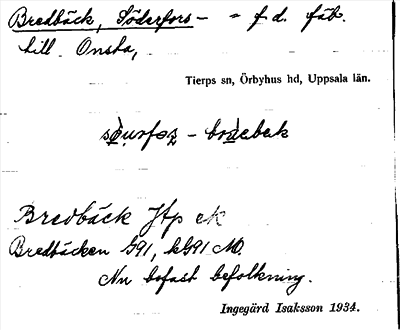 Bredbäck, Söderfors - = f. d. fäb.
till Onsta,
Tierps sn, Örbyhus hd, Uppsala län.
Bredbäck Jtp ek
Bredbäcken G91, kG91 MD.
Nu bofast befolkning.
Ingegärd Isaksson 1934.